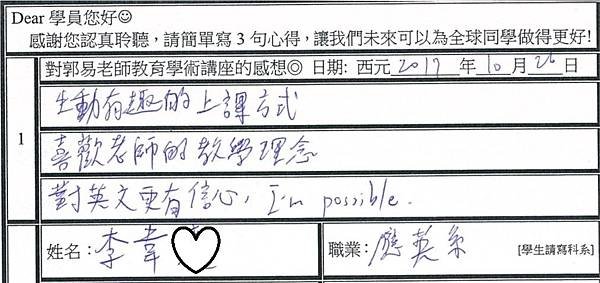 Dear 學員您好☺
感謝您認真聆聽，請簡單寫 3 句心得，讓我們未來可以為全球同學做得更好!
對郭易老師教育學術講座的感想◎ 日期: 西元 2017 年 10 月 26 日
1
生動有趣的上課方式
喜歡老師的教學理念
對英文更有信心，I'm possible.
姓名：李韋
職業：應英系 [學生請寫科系]